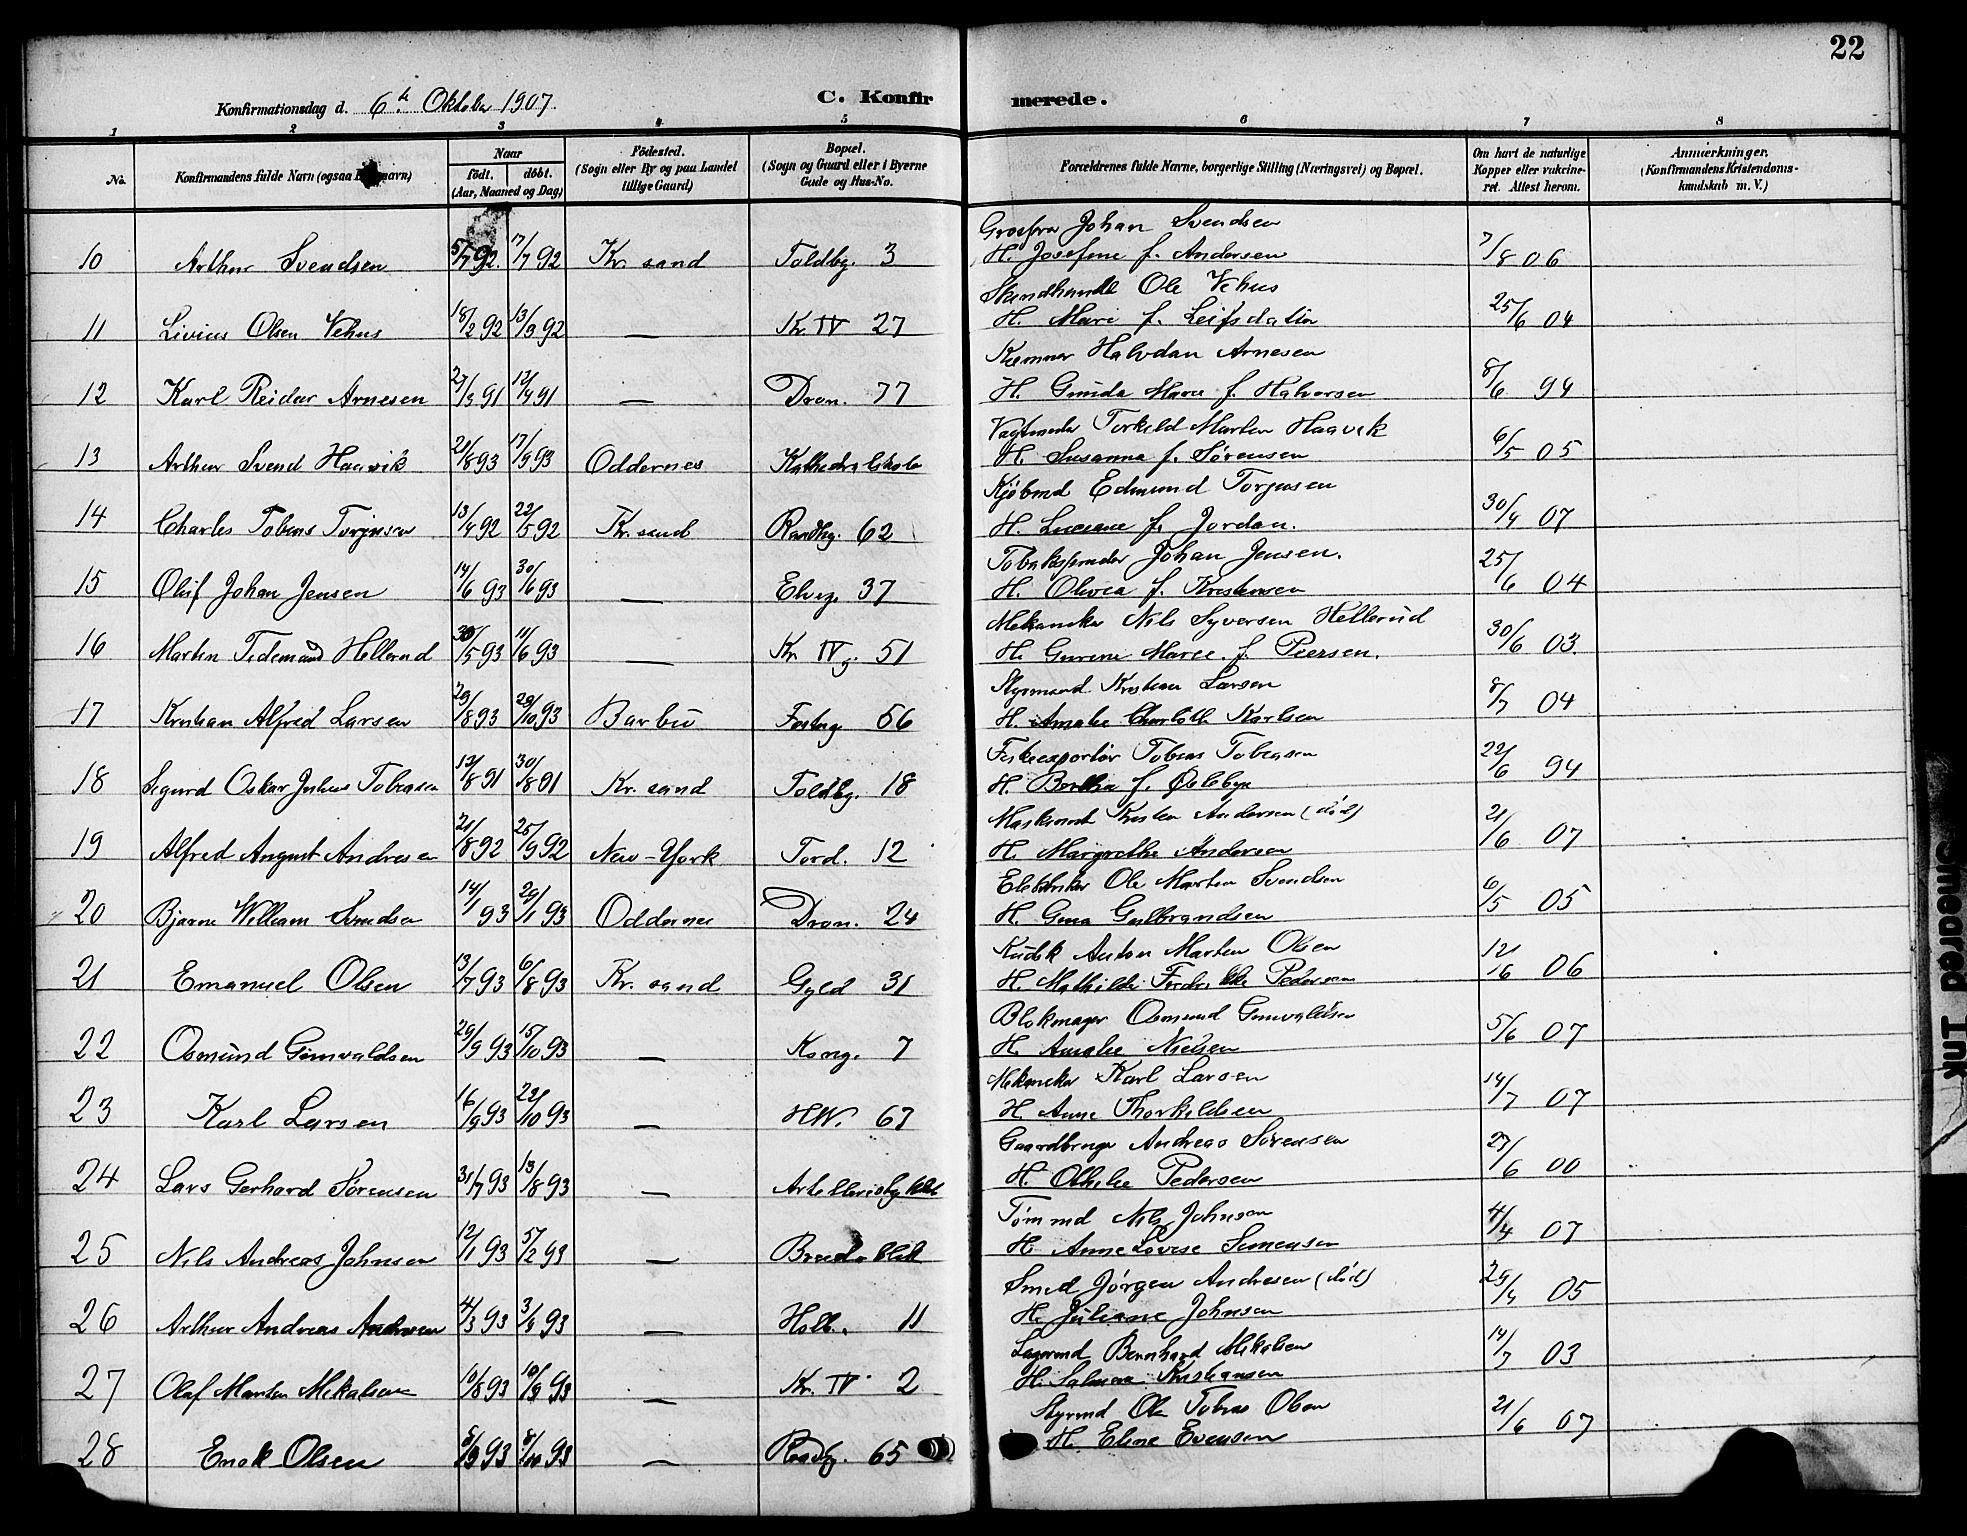 22
Konfirmationsdag d. 6te Oktober 1907.
C. Konfirmerede.
1 2 3 4 5 6 7 8
No. Konfirmandens fulde Navn (ogsaa navn) Naar født. døbt. (Aar, Maaned og Dag) Fødested. (Sogn eller By og paa Landet tillige Gaard) Bopæl. (Sogn og Gaard eller i Byerne Gade og Hus-No. Forældrenes fulde Navne, borgerlige Stilling (Næringsvei) og Bopæl. Om havt de naturlige Kopper eller vakcineret. Attest herom. Anmærkninger. (Konfirmandens Kristendomskundskab m. V.)
Johan Svendsen
10 Arthur Svendsen 5/7 92. 17/7 92 Kr. sand Toldbg. 3 H. Josefine f. Andersen 7/8 06
Ole Vehus
11 Livius Olsen Vehus 18/2 92 13/3 92 — Kr IV 27 H. Mari f. Leifsdatter 25/6 04
Kemner Halvdan Arnesen
12 Karl Reidar Arnesen 27/3 91 91 — Dron. 77 H. Gunda Marie f. Halvorsen 8/6 94
Torkild Martin Haavik
13 Arthur Svend Haavik 21/8 93 17/9 93 Oddernes Kathedralskole H. Susanna f. Sørensen 6/5 05
Kjøbmd Edmund Torjusen
14 Charles Tobias Torjusen 13/4 92 22/5 92 Kr. sand Randbg. 62 H. f. Jordan. 30/4 07
Johan Jensen.
15 Oluf Johan Jensen 14/6 93 30/6 93 — Elveg. 37 H. Olivia f. Kristensen 25/6 04
Mekaniker Nils Syversen Hellerud
16 Martin Tidemand Hellerud 30/5 93 11/6 93 — Kr. IV g. 51 H. Marie. f. Peersen. 30/6 03.
Styrmand Kristian Larsen
17 Kristian Alfred Larsen 29/8 93 29/10 93 Barbu Festng 56 H. Amalie Charlotte Karlsen 8/7 04
Fiskeexportør Tobias Tobiasen
18 Sigurd Oskar Julius Tobiasen 12/8 91 30/8 91 Kr. sand Toldbg. 18 H. Bertha f. 22/6 94
Maskinist Kristen Andersen (død)
19 Alfred August Andresen 21/8 92 25/9 92 New-York Tord. 12 H. Margrethe Andersen 21/6 07
Ole Martin Svendsen
20 Bjarne William Svendsen 14/1 93 29/1 93 Oddernes Dron. 24 H. Gina Gulbrandsen 6/5 05
Kudsk Anton Martin Olsen
21 Emanuel Olsen 13/7 93 6/8 93 Kr. sand Gyld 31 H Mathilde Fredrikke Pedersen 12/16 06
Blokmager Osmund Gunvaldsen
22 Osmund Gunvaldsen 29/9 93 15/10 93 — Kong. 7 H. Amalie Nielsen 5/6 07
Mekaniker Karl Larsen
23 Karl Larsen 16/9 93 22/10 93 — H.W. 67 H. Anne Thorkildsen 14/7 07
Gaardbruger Andreas Sørensen
24 Lars Gerhard Sørensen 31/7 93 13/8 93 — H. Othilie Pedersen 27/6 00
Tømmd Nils Johnsen
25 Nils Andreas Johnsen 12/1 93 5/2 93 — Breidablik H Anne Lovise Simensen 4/4 07
Smed Jørgen Andresen (død)
26 Arthur Andreas Andresen 4/3 93 3/4 93 — Holb. 11 H. Juliane Johnsen 25/4 05
Lagermd Bernhard Mikalsen
27 Olaf Martin Mikalsen 10/8 93 10/9 93 — Kr. IV 2 H. Kristiansen 14/7 03
Styrmd Ole Tobias Olsen
28 Enok Olsen 5/9 93 8/10 93 — Randbg. 65 H. Eline Evensen 21/6 07
Smeared Ink